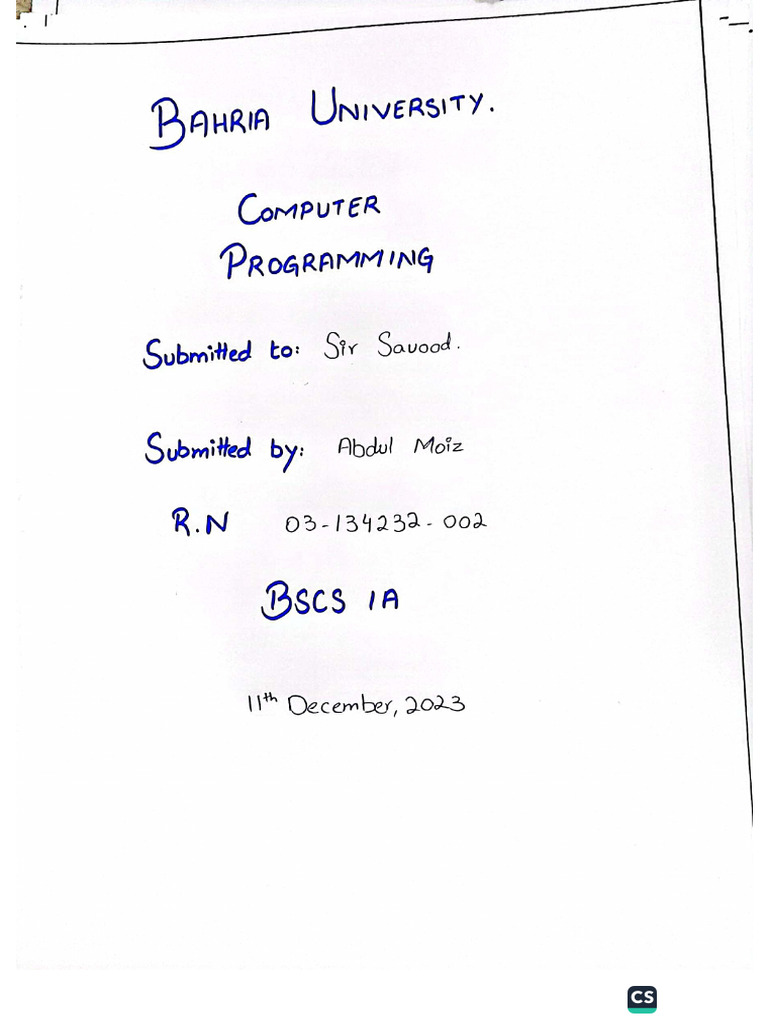 BAHRIA UNIVERSITY.
COMPUTER
PROGRAMMING
Submitted to: Sir Savood.
Submitted by: Abdul Moiz
R.N 03-134232-002
BSCS 1A
11th December, 2023
CS